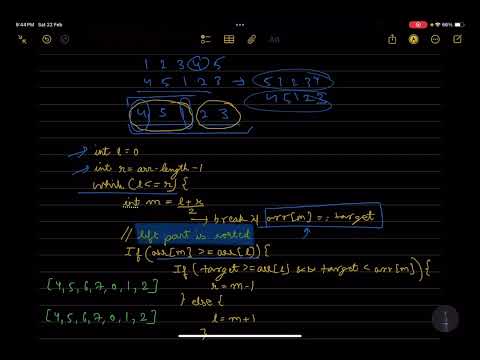 9:44 PM Sat 22 Feb
86%
Aa
1 2 3 4 5
4 5 1 2 3 → 5 1 2 3 4
4 5 1 2 3
4 5 1 2 3
→ int l = 0
→ int r = arr.length - 1
while (l <= r) {
int m = l + r
2
→ break if arr[m] == target
// left part is sorted
If (arr[m] >= arr[l]) {
If (target >= arr[l] && target < arr[m]) {
[4, 5, 6, 7, 0, 1, 2] r = m - 1
} else {
[4, 5, 6, 7, 0, 1, 2] l = m + 1
}